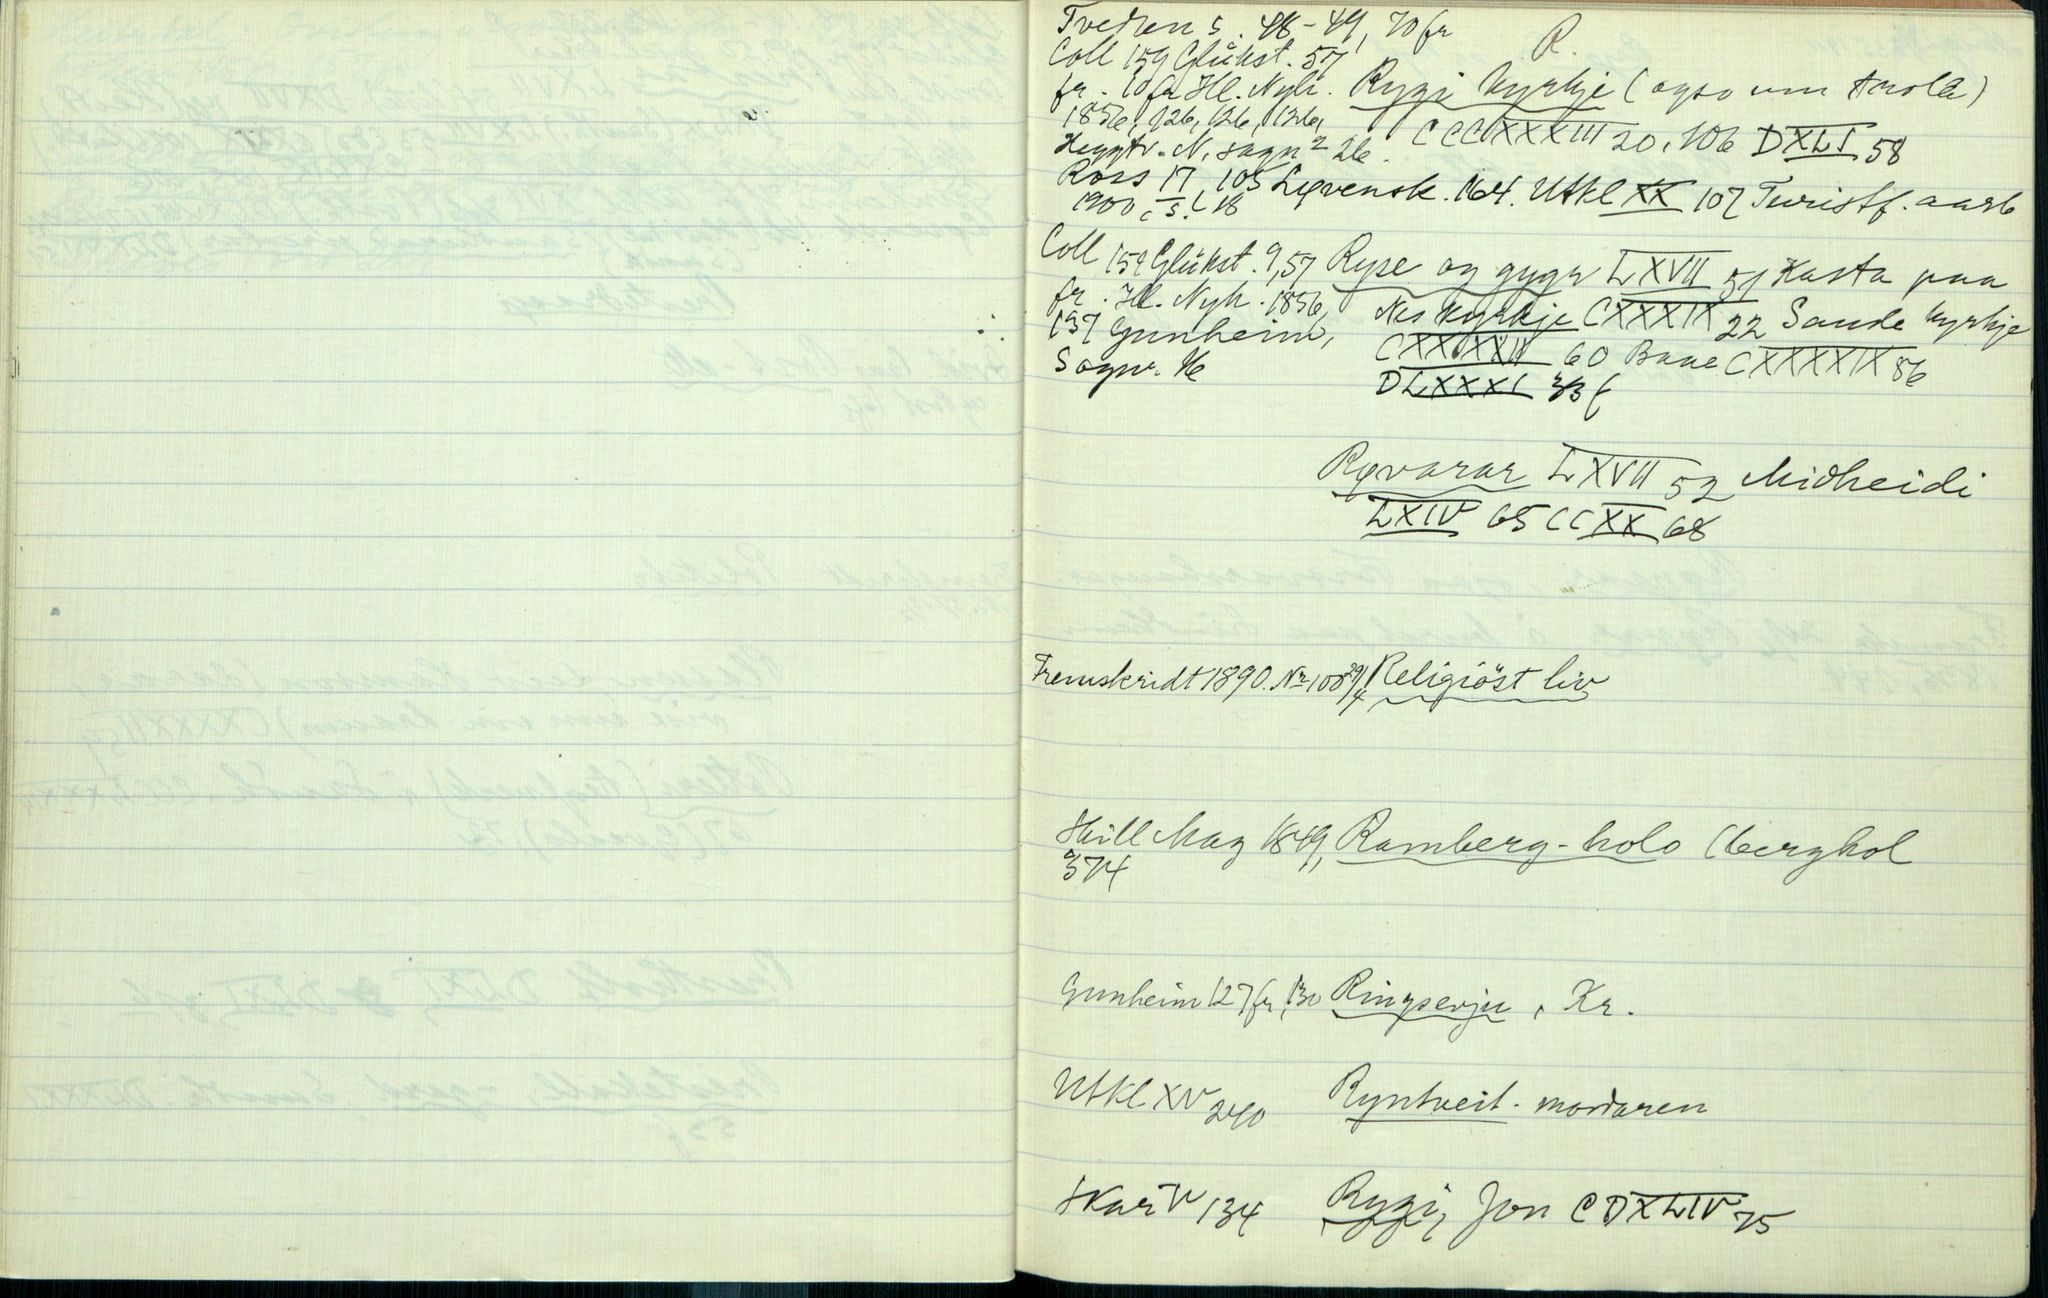 R.
Tvedten s. 48-49, 70 fr
Coll 159 Glükst. 57
fr. 10 fr Ill. Nyh. Rygi kyrkje (ogso um
1856, 126, 126, 136, CCCXXXIII 20, 106 DXLI 58
Heggtv. N. sagn 2 26.
Ross 17, 105 Lyvensk. 164. Utkl XX 107 Turistf. aarb
1900, s. 18
Coll 159 Glükst. 9, 57 Ryse og gygr LXVII 51 Kasta paa
fr. Ill. Nyh. 1856, Nes kyrkje CXXXIX 22 Sande kyrkje
137 Gunheim, 60 Bøae CXXXXIX 86
Sogur. 16 DLXXXI
Ryvarar LXVII 52 Midheidi
LXIV 65 CCXX 68
Fremskridt 1890. Nr 100 29/4 Religiöst liv
Skill Mag 1849, Ramberg-holo (berghol
374
Gunheim 127 fr, 130 Ringserju, Kr.
Utkl XV 240 Ryntveit-mordaren
Skar V 134 Rygi, Jon CDXLIV 75